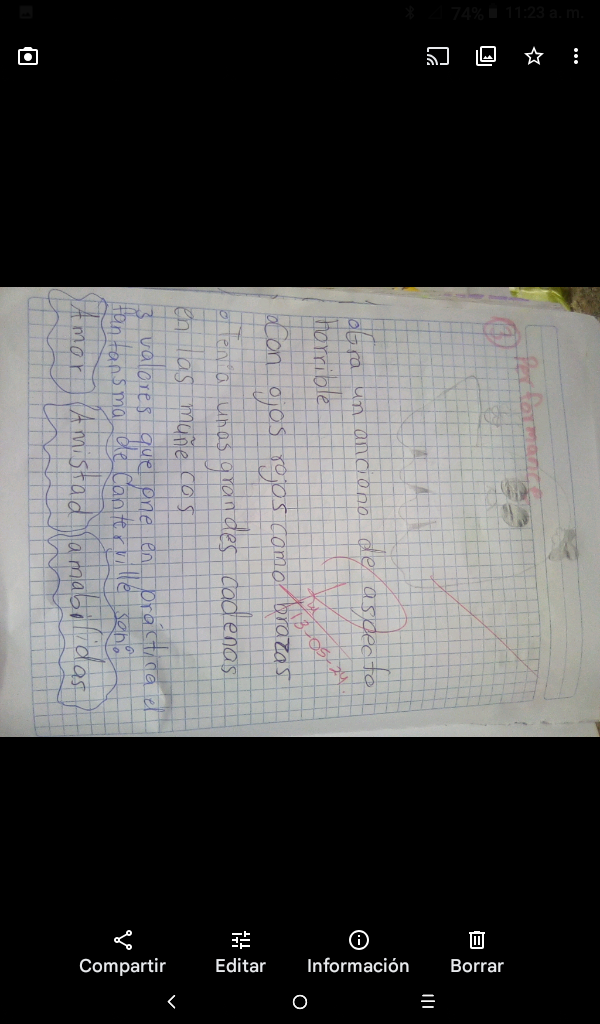 74% 11:23 a. m.
13 Performance
Era un anciano de aspecto
horrible
Con ojos rojos como brazas
13-05-24
Tenia unas grandes cadenas
en las muñecos
3 valores que pne en práctica el
fantasma de Canterville son:
Amor Amistad amabilidas
Compartir Editar Información Borrar